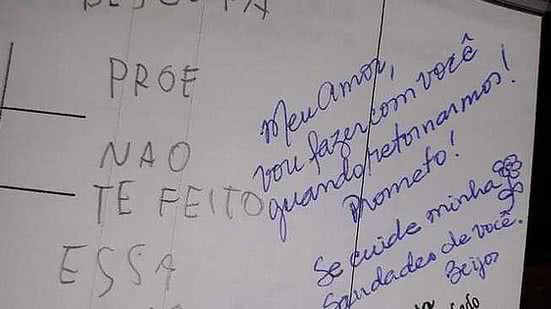 PROF
NAO
TE FEITO
ESSA
Meu Amor,
vou fazer com você
quando retornarmos!
Prometo!
Se cuide minha
Saudades de você.
Beijos